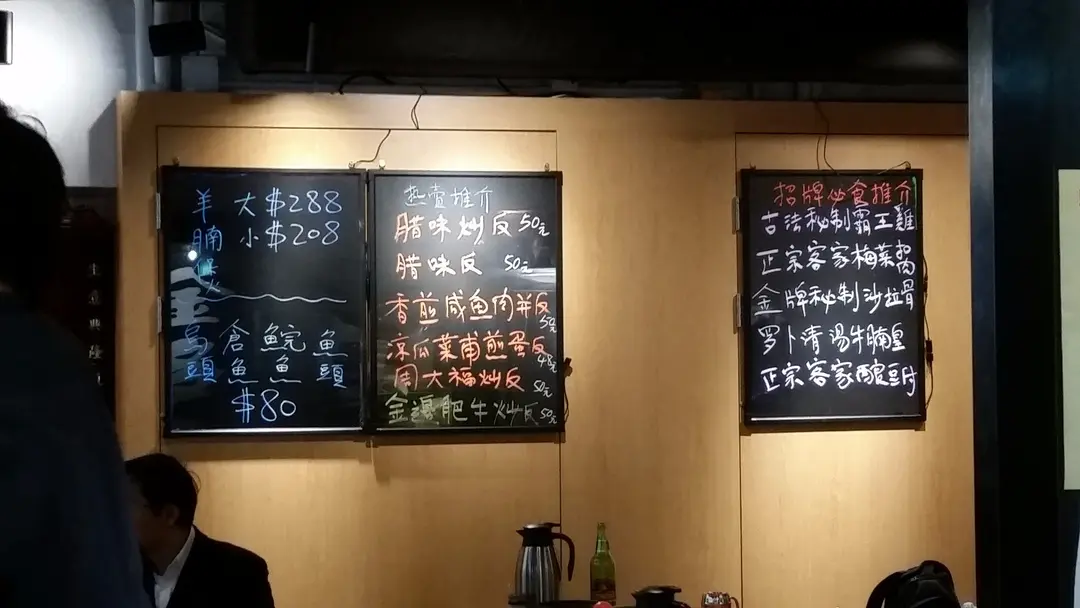 羊 大 $288
腩 小 $208
煲
烏 倉 鯇 魚
頭 魚 魚 頭
$80
热賣推介
腊味炒反 50元
腊味反 50元
香煎咸鱼肉并反 50元
凉瓜菜甫煎蛋反 48元
周大福炒反 50元
金邊肥牛炒反 50元
招牌必食推介
古法秘制霸王雞
正宗客家梅菜扣肉
金牌秘制沙拉骨
罗卜清湯牛腩皇
正宗客家酿豆付